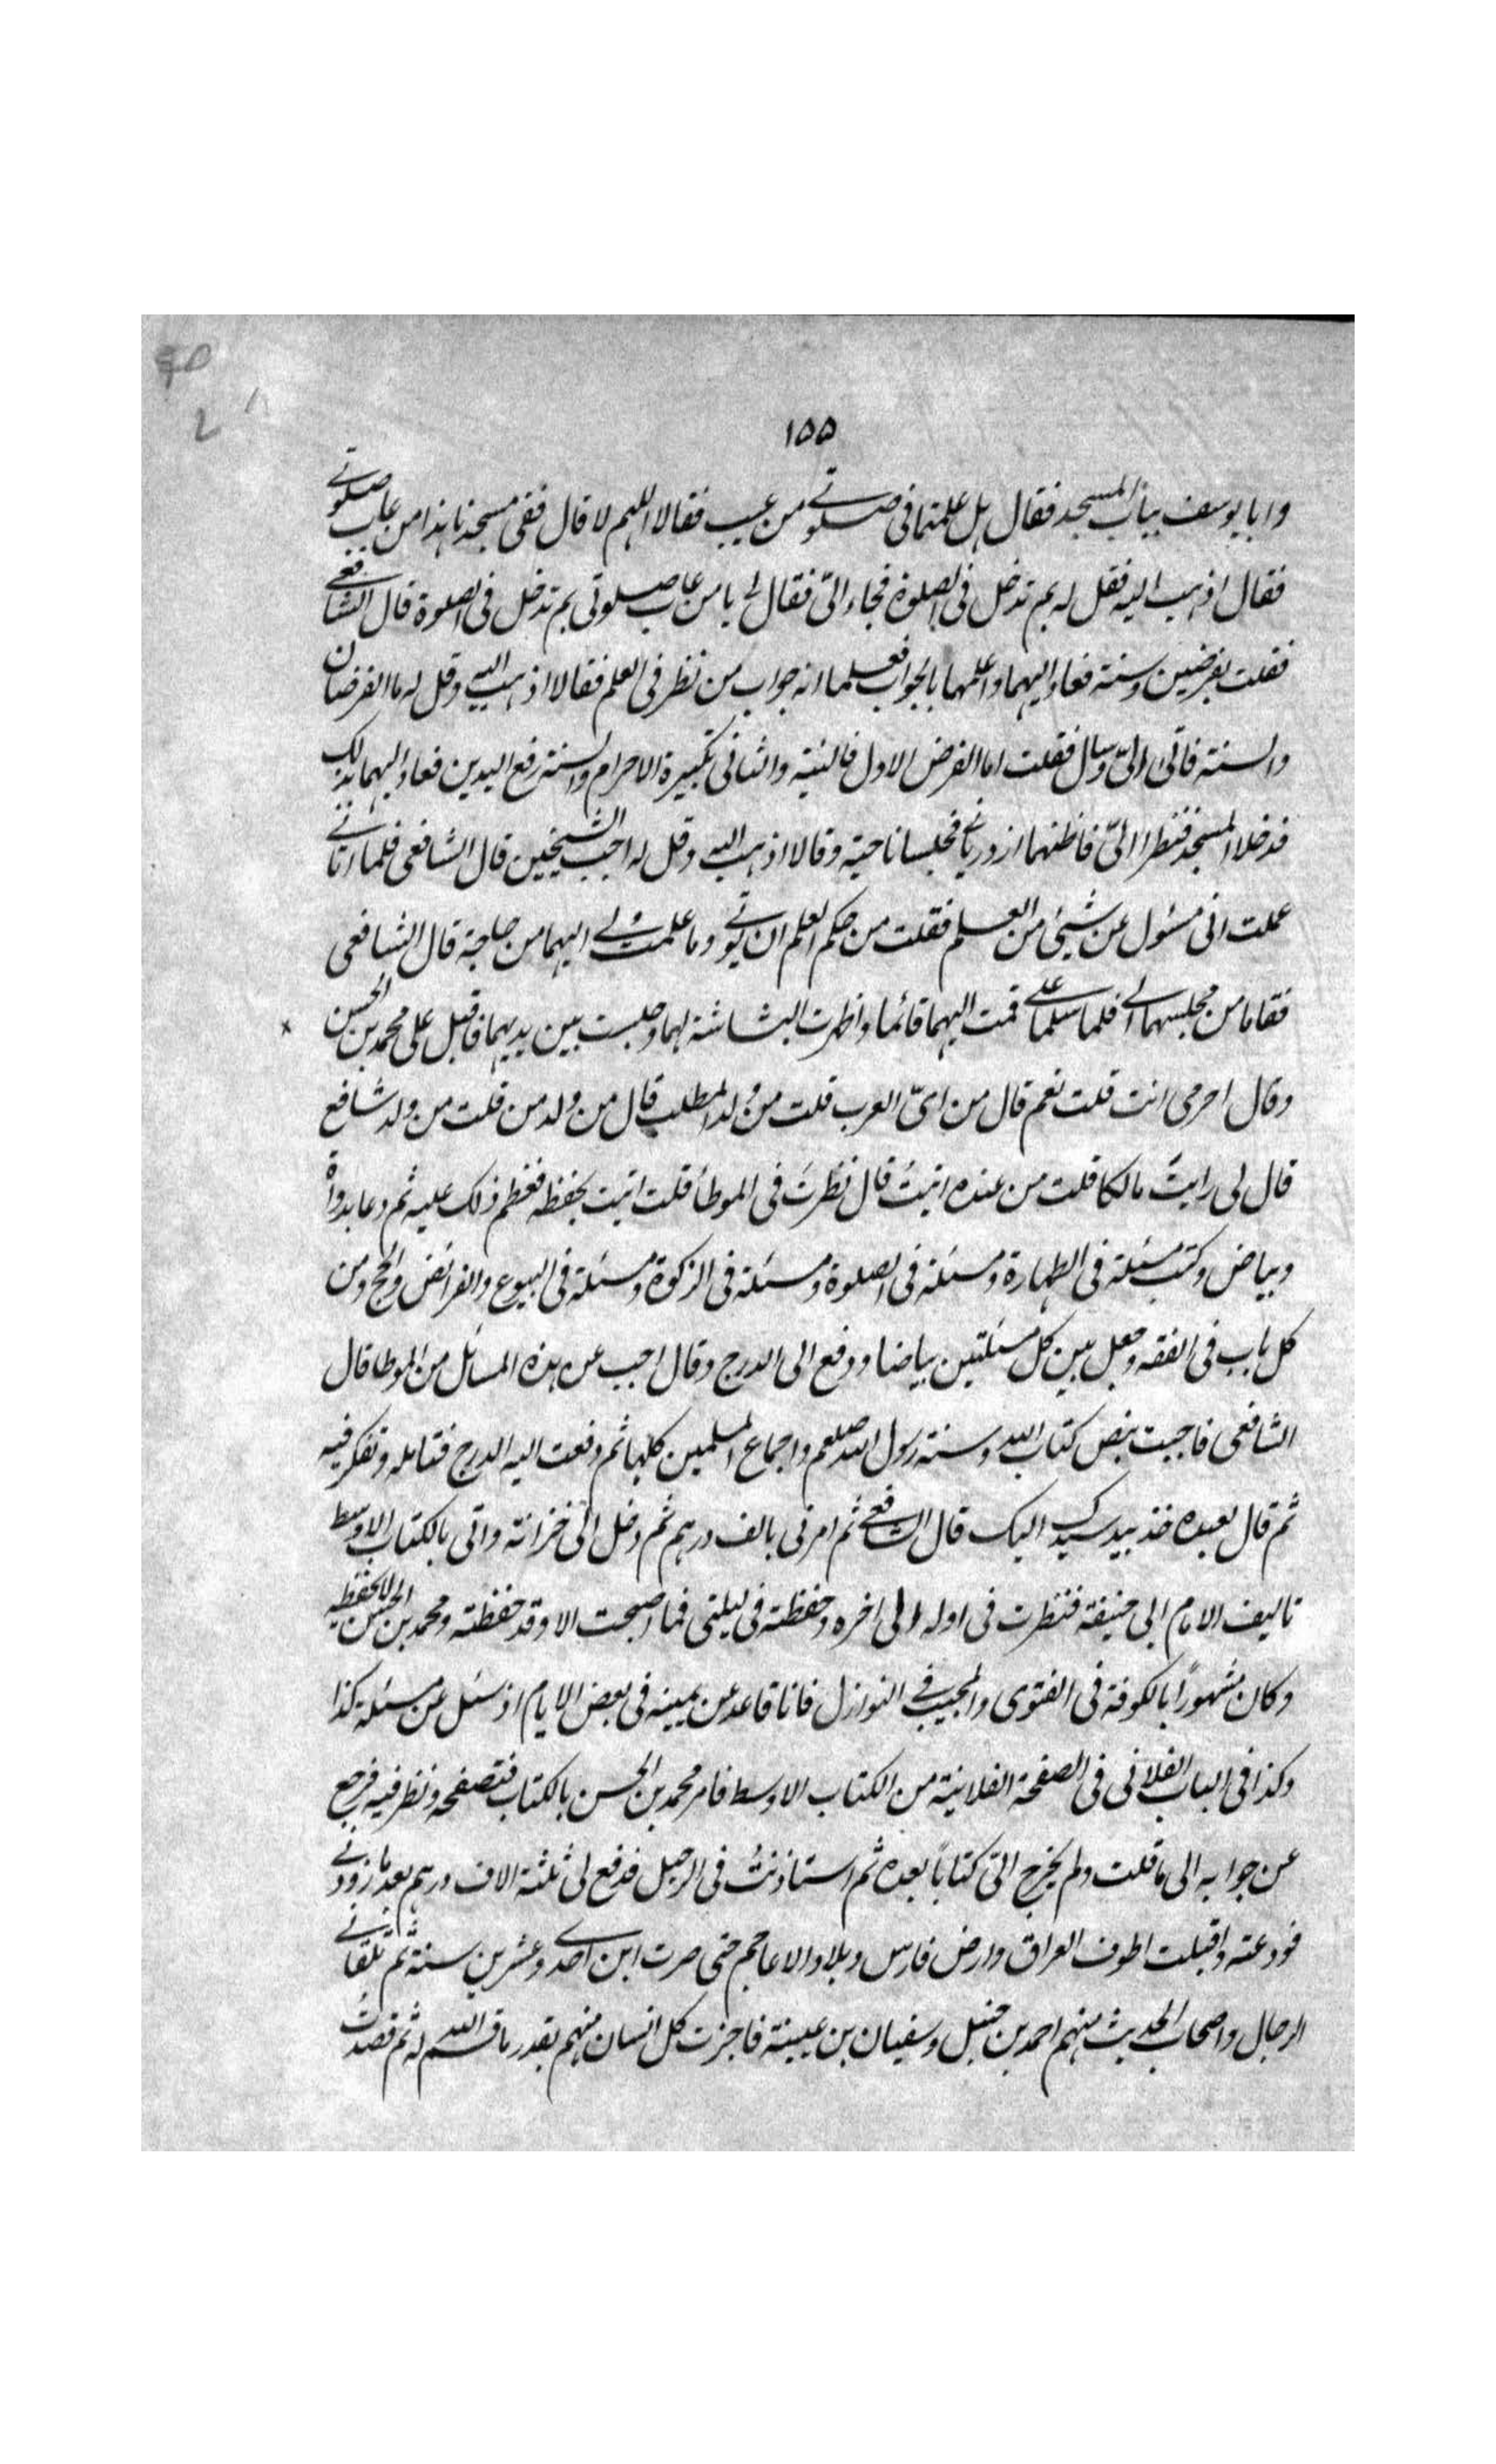 ١٥٥
وابا يوسف بباب المسجد فقال هل علمتما فى صلوتے من عيب فقالا اللهم لا قال ففى مسجدنا هذا من عاب صلوتے
فقال اذهب اليه فقل له بم تدخل فى الصلوة فجاء الىّ فقال لى يا من عاب صلوتى بم تدخل فى الصلوة قال الشافعے
فقلت بفرضين وسنة فعاد اليهما واعلمهما بالجواب فعلما انه جواب من نظر فى العلم فقالا اذهب اليه وقل له ما الفرضان
والسنة فاتى الىّ وسال فقلت اما الفرض الاول فالنية والثانى تكبيرة الاحرام والسنة رفع اليدين فعاد اليهما بذلك
فدخلا المسجد فنظرا الىّ فاظنهما ازدريانے فجلسا ناحية وقالا اذهب اليه وقل له اجب الشيخين قال الشافعى فلما اتانے
علمت انى مسئول عن شيئ من العلم فقلت من حكم العلم ان يؤتے وما علمت لے اليهما من حاجة قال الشافعى
فقاما من مجلسهما الے فلما سلما علے قمت اليهما قائما واظهرت البشاشة لهما وجلست بين يديهما فاقبل على محمد بن الحسن
وقال احرمى انت قلت نعم قال من اىّ العرب قلت من ولد المطلب قال من ولد من قلت من ولد شافع
قال لى رايتَ مالكا قلت من عنده اتيتُ قال نظرتَ فى الموطأ قلت اتيت بحفظه فعظم ذلك عليه ثم دعا بدواة
وبياض وكتب مسئلة فى الطهارة ومسئلة فى الصلوة ومسئلة فى الزكوة ومسئلة فى البيوع والفرائض والحج ومن
كل باب فى الفقه وجعل بين كل مسئلتين بياضا ودفع الى الدرج وقال اجب عن هذه المسائل من الموطا قال
الشافعى فاجبت بنص كتاب الله وسنة رسول الله صلعم واجماع المسلمين كلها ثم دفعت اليه الدرج فتامله وتفكر فيه
ثم قال لعبده خذ بيد سيدك اليك قال الشافعے ثم امرنى بالف درهم ثم دخل الى خزانته واتى بالكتاب الاوسط
تاليف الامام ابى حنيفة فنظرت فى اوله الى اخره وحفظته فى ليلتى فما اصبحت الا وقد حفظته ومحمد بن الحسن لا يحفظه
وكان مشهورًا بالكوفة فى الفتوى والمجيب فے النوازل فانا قاعد عن يمينه فى بعض الايام اذ سئل عن مسئلة كذا
وكذا فى الباب الفلانى فى الصفحة الفلانية من الكتاب الاوسط فامر محمد بن الحسن بالكتاب فتصفحه ونظر فيه فرجع
عن جوابه الى ما قلت ولم يخرج الىّ كتابًا بعده ثم استاذنتُ فى الرحيل فدفع لى ثلثة الاف درهم بعد ما زودنے
فودعته واقبلت اطوف العراق وارض فارس وبلاد الاعاجم حتى صرت ابن احدے وعشرين سنة ثم تلقانے
الرجال واصحاب الحديث منهم احمد بن حنبل وسفيان بن عيينة فاجزت كل انسان منهم بقدر ما قسم الله له ثم قصدتُ